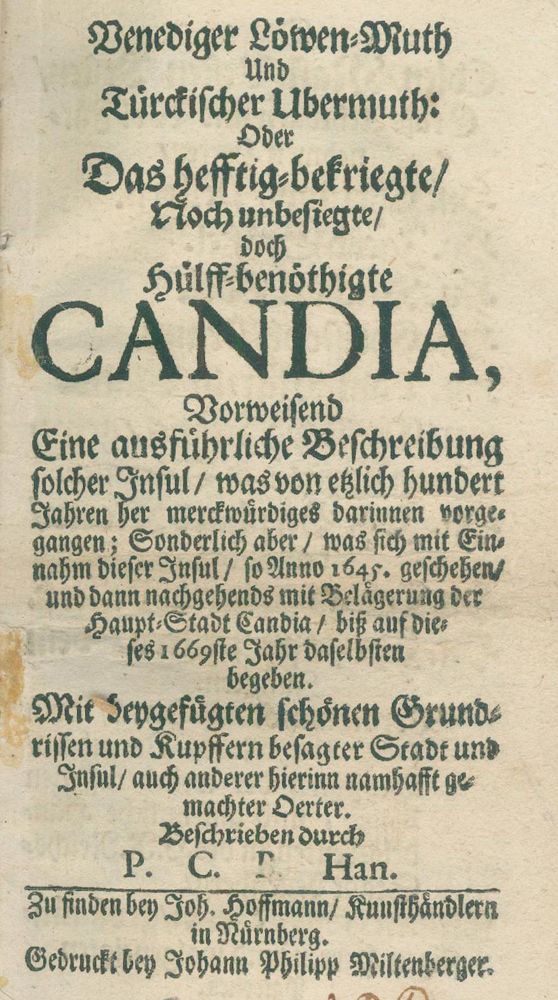 Venediger Löwen-Muth
Und
Türckischer Ubermuth:
Oder
Das hefftig-bekriegte/
Noch unbesiegte/
doch
Hülff-benöthigte
CANDIA,
Vorweisend
Eine ausführliche Beschreibung
solcher Insul / was von etzlich hundert
Jahren her merckwürdiges darinnen vorge-
gangen; Sonderlich aber / was sich mit Ein-
nahm dieser Insul / so Anno 1645. geschehen/
und dann nachgehends mit Belägerung der
Haupt-Stadt Candia / biß auf die-
ses 1669ste Jahr daselbsten
begeben.
Mit beygefügten schönen Grund-
rissen und Kupffern besagter Stadt und
Insul/ auch anderer hierinn namhafft ge-
machter Oerter.
Beschrieben durch
P. C. Han.
Zu finden bey Joh. Hoffmann/ Kunsthändlern
in Nürnberg.
Gedruckt bey Johann Philipp Miltenberger.